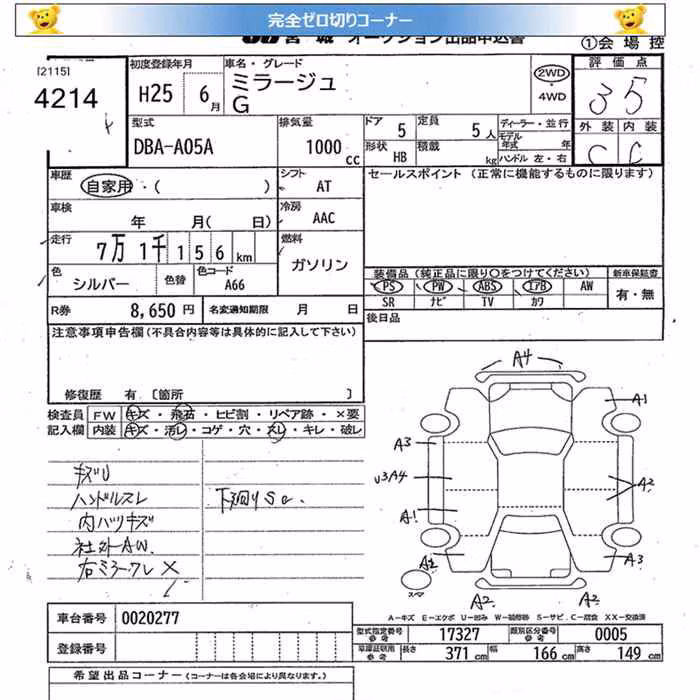 完全ゼロ切りコーナー
JU 宮城 オークション出品申込書
①会場控
[2115]
4214
初度登録年月
H25 6月
車名・グレード
ミラージュ
G
2WD
・4WD
評価点
3 5
外装 内装
C C
型式
DBA-A05A
排気量
1000cc
ドア 5
定員 5人
形状 HB
積載 kg
ディーラー・並行
モデル年式 年
ハンドル 左・右
車歴
自家用・( )
シフト AT
セールスポイント (正常に機能するものに限ります)
車検
年 月( 日)
冷房 AAC
走行
7万 1千 156km
燃料
ガソリン
色
シルバー
色替
色コード
A66
装備品 (純正品に限り○をつけてください)
新車保証書
PS PW ABS エアB AW
有・無
SR ナビ TV カワ
R券 8,650円
名変通知期限 月 日
後日品
注意事項申告欄(不具合内容等は具体的に記入して下さい)
修復歴 有 〔箇所 〕
検査員記入欄
FW キズ・飛石・ヒビ割・リペア跡・×要
内装 キズ・汚レ・コゲ・穴・スレ・キレ・破レ
キズU
ハンドルスレ
内バリキズ
社外AW.
右ミラーワレ ×
下廻りSa.
A4
A1
A3
U3A4
A2
A1
A2
A3
A2
A2
スペア
A-キズ E-エクボ U-凹み W-補修跡 S-サビ C-腐食 XX-交換済
車台番号 0020277
登録番号
型式指定番号 参考 17327
類別区分番号 参考 0005
車庫証明用 参考 長さ 371cm 幅 166cm 高さ 149cm
希望出品コーナー (コーナーは各会場により異なります。)